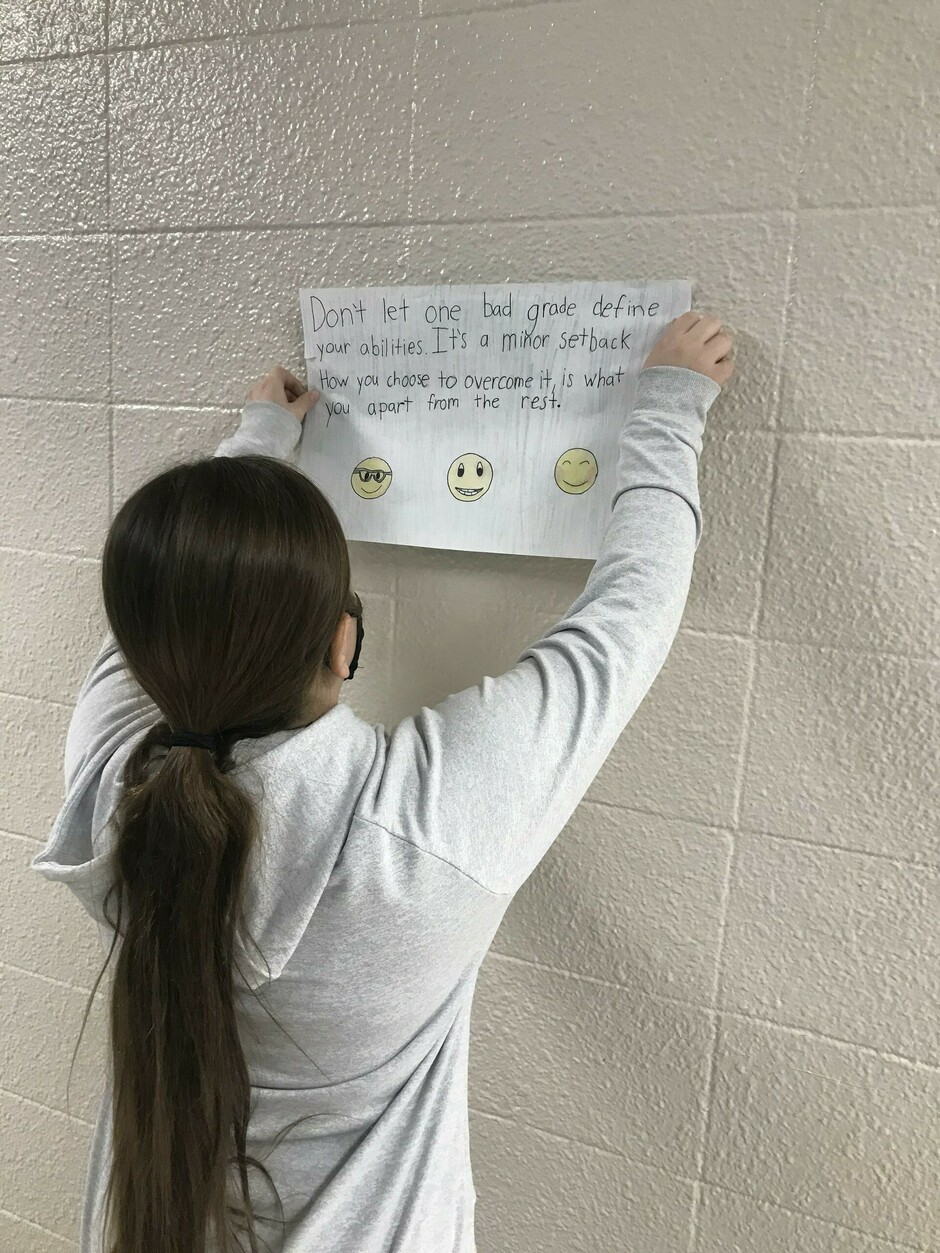 Don't let one bad grade define
your abilities. It's a minor setback
How you choose to overcome it, is what
you apart from the rest.